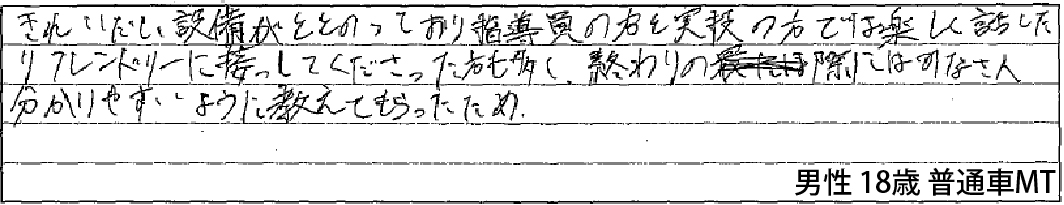 きれいだし、設備がととのっており指導員の方も実技の方では楽しく話した
りフレンドリーに接っしてくださった方も多く、終わりの際にはみなさん
分かりやすいように教えてもらったため.
男性 18歳 普通車MT